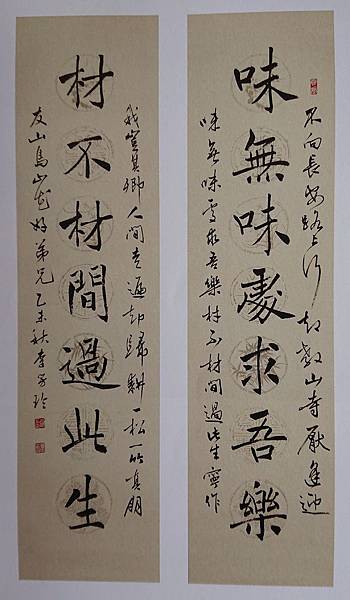 不向長安路上行却教山寺厭逢迎
味無味處求吾樂
味無味處求吾樂材不材間過此生寧作
我豈其卿人間走遍却歸耕一松一竹真朋
材不材間過此生
友山鳥山花好弟兄 乙未秋李玲